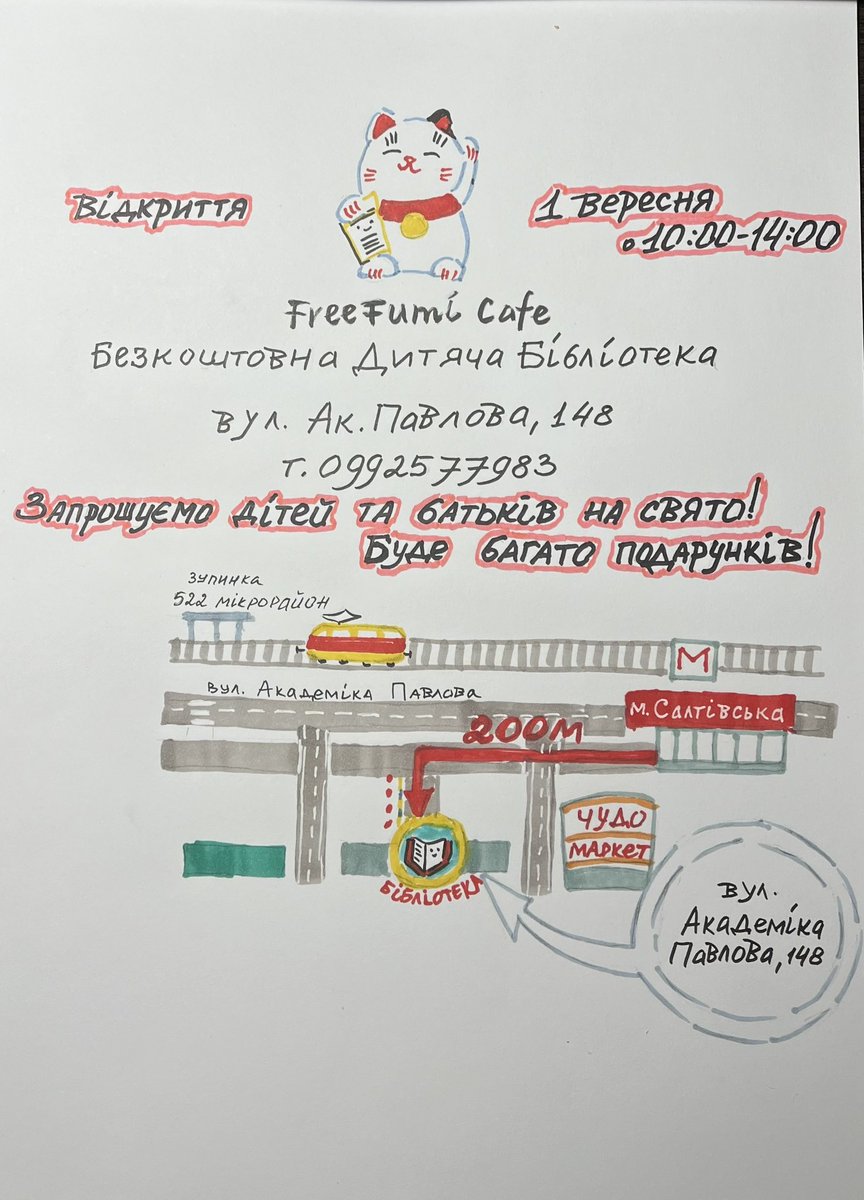 Відкриття
1 Вересня
о 10:00-14:00
FreeFumi Cafe
Безкоштовна Дитяча Бібліотека
вул. Ак. Павлова, 148
т. 0992577983
Запрошуємо дітей та батьків на свято!
Буде багато подарунків!
зупинка
522 мікрорайон
М
вул. Академіка Павлова
м. Салтівська
200м
ЧУДО
МАРКЕТ
БІБЛІОТЕКА
вул.
Академіка
Павлова, 148